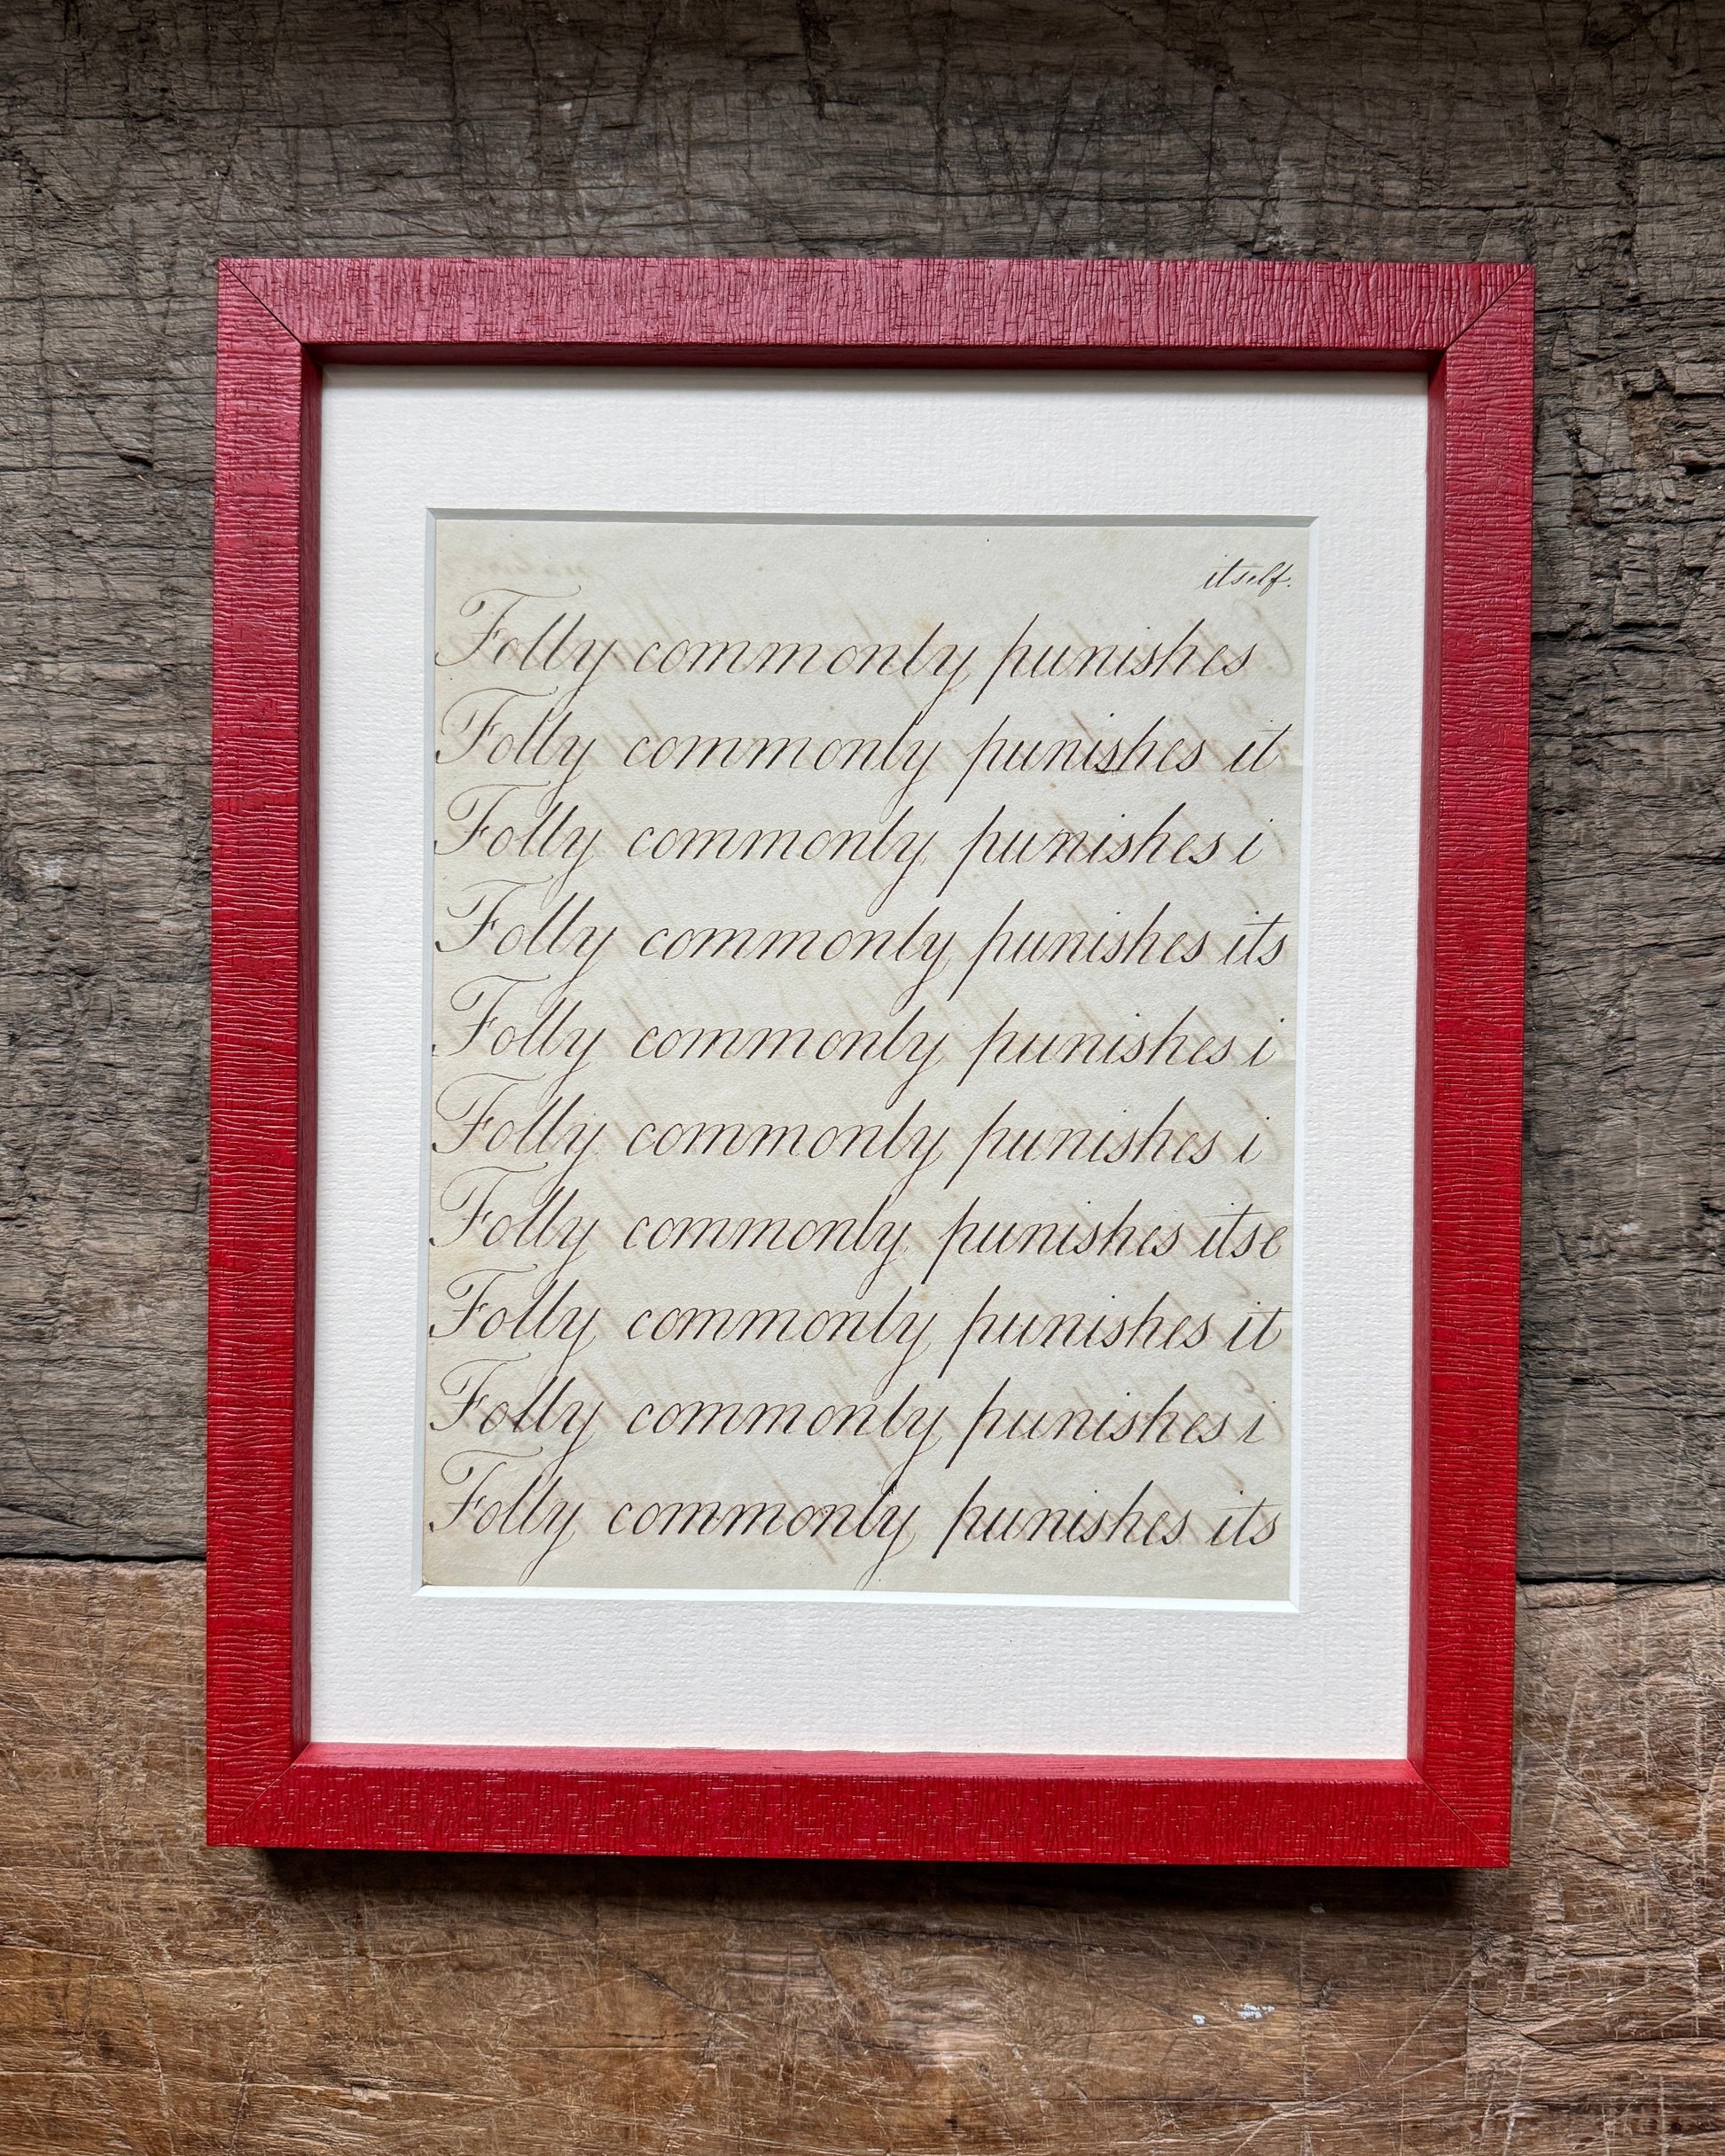 itself.
Folly commonly punishes
Folly commonly punishes it
Folly commonly punishes i
Folly commonly punishes its
Folly commonly punishes i
Folly commonly punishes i
Folly commonly punishes itse
Folly commonly punishes it
Folly commonly punishes i
Folly commonly punishes its